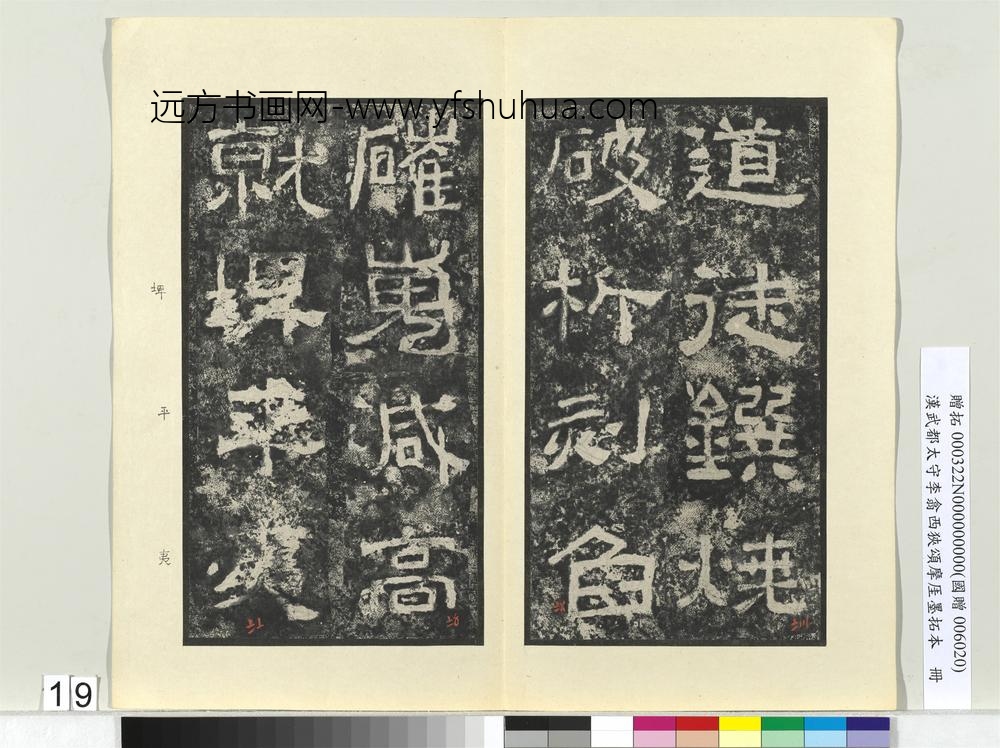 远方书画网-www.yfshuhua.com
道徒鐉燒
破析刻臽
磪嵬減高
就埤平夷
埤
平
夷
贈拓 000322N000000000(國贈 006020)
漢武都太守李翕西狹頌摩厓墨拓本 冊
19